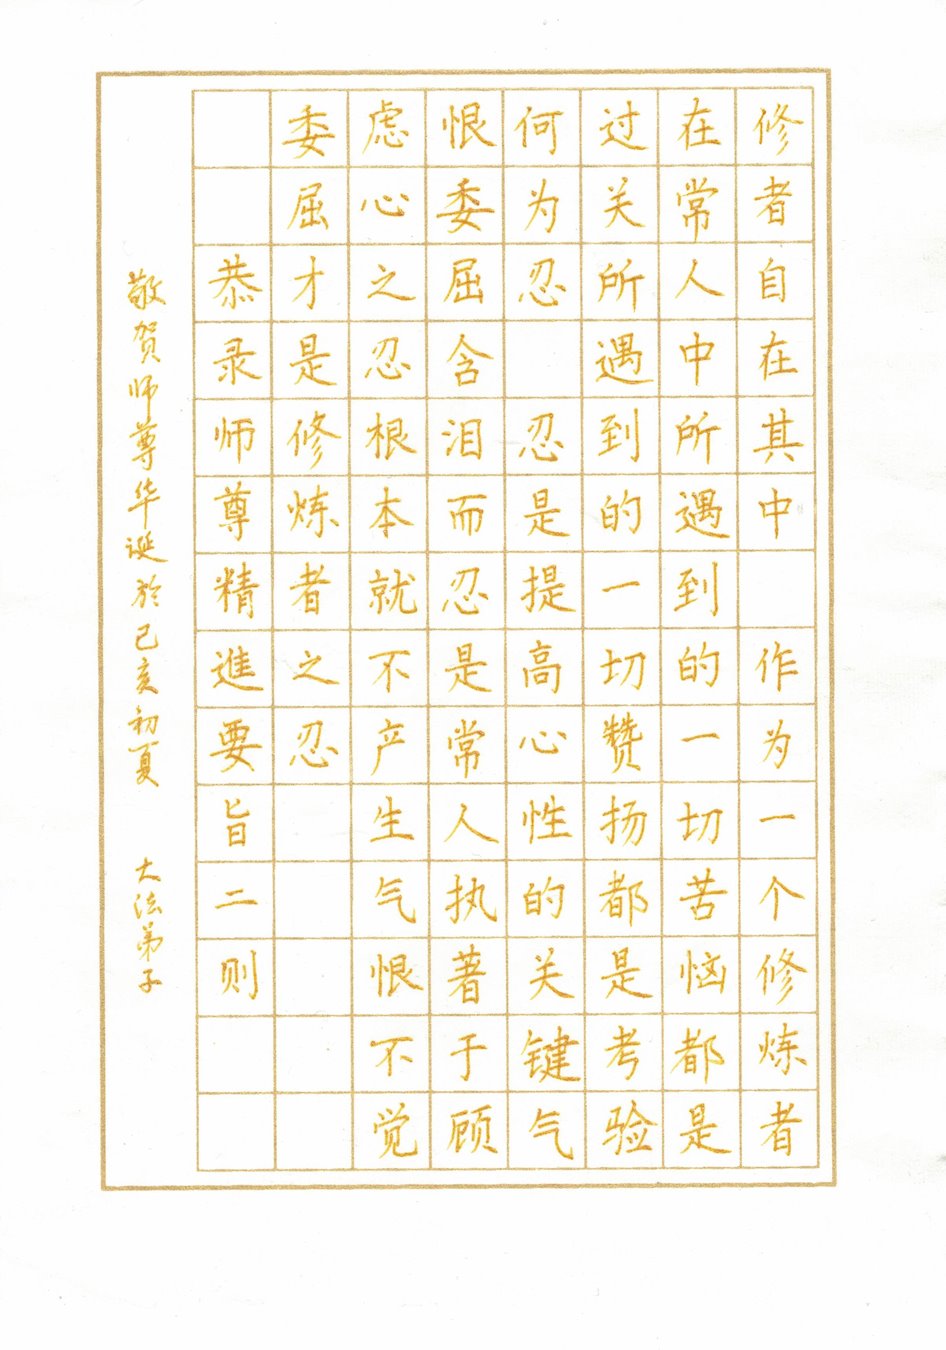 修者自在其中 作为一个修炼者
在常人中所遇到的一切苦恼都是
过关所遇到的一切赞扬都是考验
何为忍 忍是提高心性的关键气
恨委屈含泪而忍是常人执著于顾
虑心之忍根本就不产生气恨不觉
委屈才是修炼者之忍
恭录师尊精進要旨二则
敬贺师尊华诞於己亥初夏 大法弟子